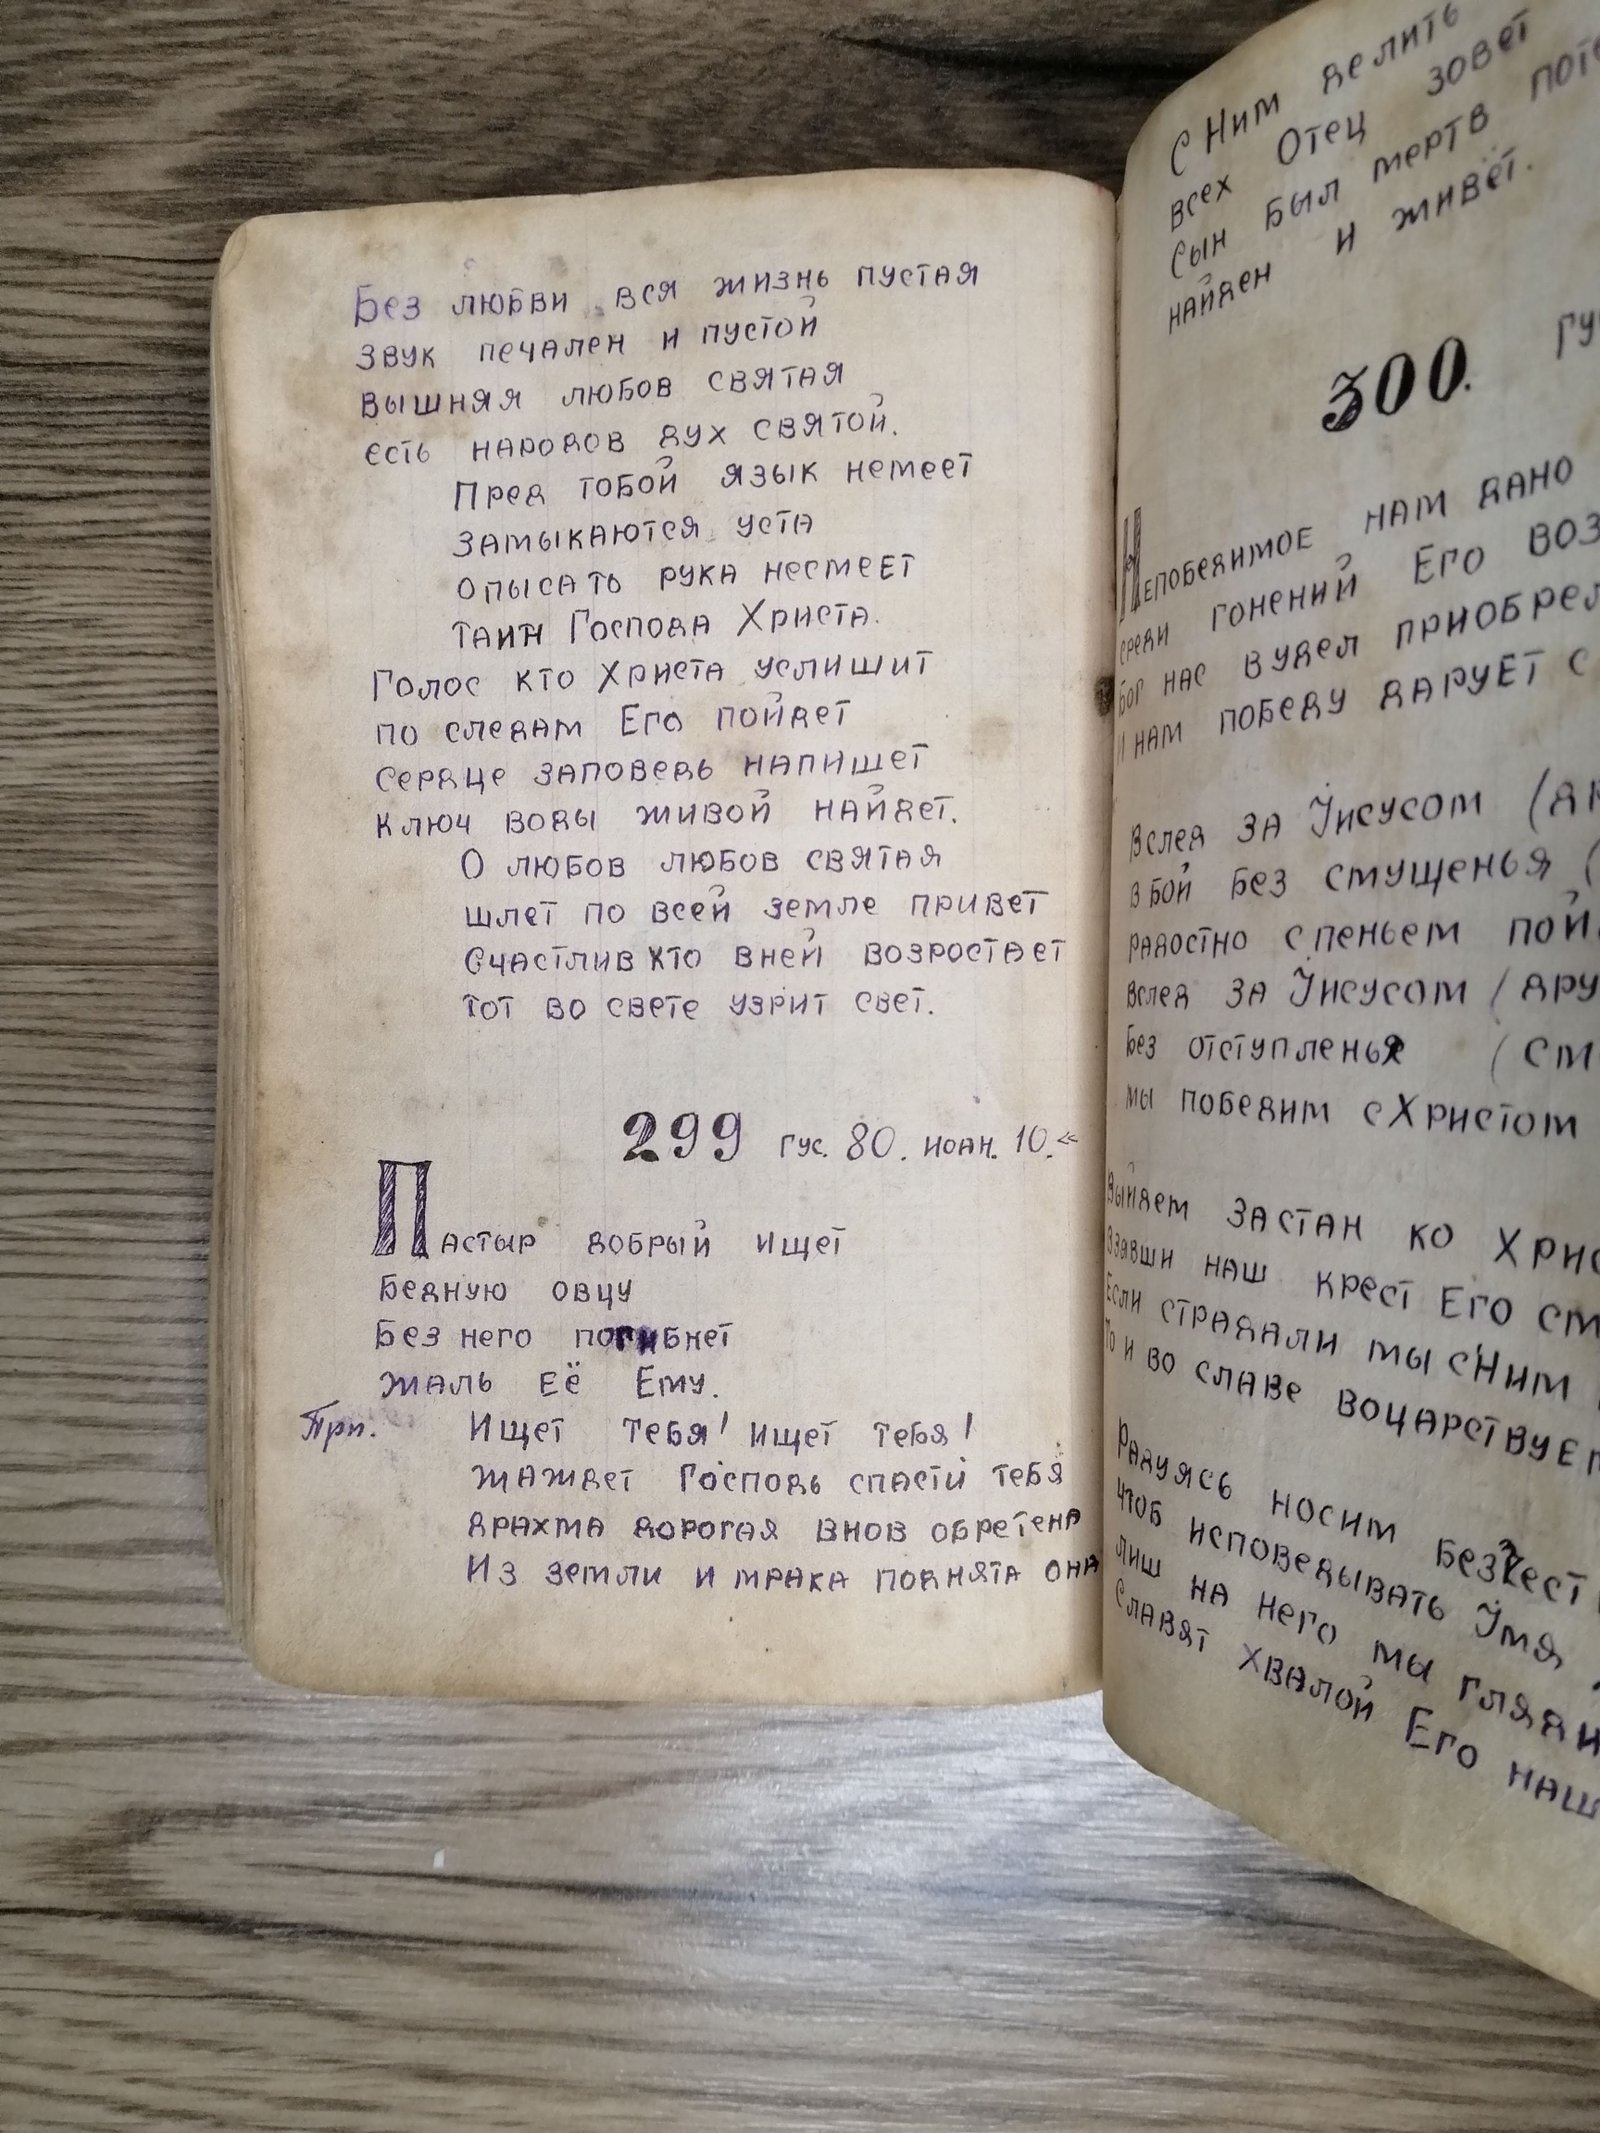 Без любви вся жизнь пустая
звук печален и пустой
вышняя любов святая
есть народов дух святой.
Пред тобой язык немеет
замыкаются уста
опысать рука несмеет
таин Господа Христа.
Голос кто Христа услишит
по следам Его пойдет
сердце заповедь напишет
ключ воды живой найдет.
О любов любов святая
шлет по всей земле привет
Счастлив кто вней возростает
тот во свете узрит свет.
299 гус. 80. иоан. 10.«
Пастыр добрый ищет
бедную овцу
Без него погибнет
жаль её Ему.
Прп. Ищет тебя! ищет тебя!
жаждет Господь спасти тебя
драхма дорогая внов обретена
Из земли и мрака поднята она
С Ним делить
всех Отец зовет
сын был мертв
найден и живёт.
300.
Непобедимое нам дано
среди гонений Его
Бог нас вудел
и нам победу дарует с
вслед за Іисусом
в бой без смущенья
радостно спеньем
вслед за Іисусом
без отступленья
мы победим сХристом
выйдем застан ко
взявши наш крест Его
Если страдали мы сНим
то и во славе
Радуясь носим
чтоб исповедывать Імя
лиш на него мы
Славят хвалой Его наш